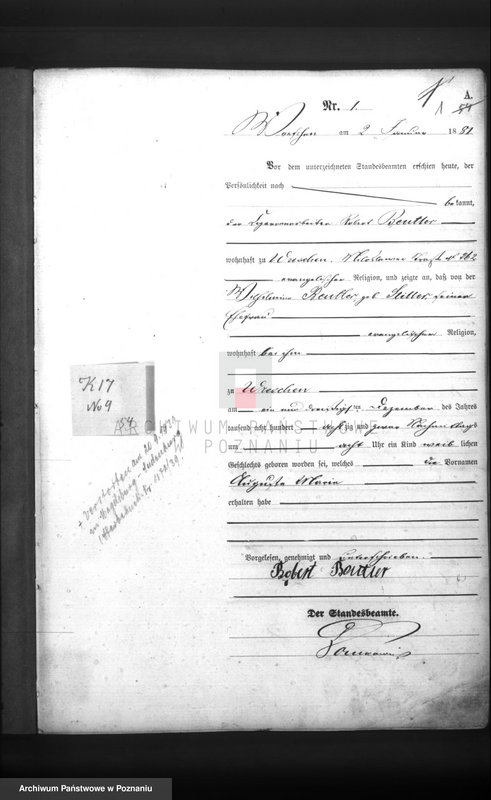 A.
Nr. 1
1 84
Wreschen am 2 Januar 1881.
Vor dem unterzeichneten Standesbeamten erschien heute, der
Persönlichkeit nach
bekannt,
der Robert Beutler
wohnhaft zu Wreschen, 262
evangelischer Religion, und zeigte an, daß von der
Wilhelmine Beutler geb. seiner
Ehefrau
evangelischer Religion,
wohnhaft bei ihm
zu Wreschen
am ein und dreißigsten Dezember des Jahres
tausend acht hundert achtzig und zwar Nachmittags
um acht Uhr ein Kind weiblichen
Geschlechts geboren worden sei, welches die Vornamen
Auguste Maria
erhalten habe
Vorgelesen, genehmigt und unterschrieben.
Robert Beutler
Der Standesbeamte.
K17
No 9
+ verstorben am
in Magdeburg
ARCHIWUM PAŃSTWOWE
W POZNANIU
Archiwum Państwowe w Poznaniu